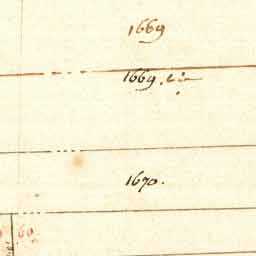 1669
1669.
1670.
60